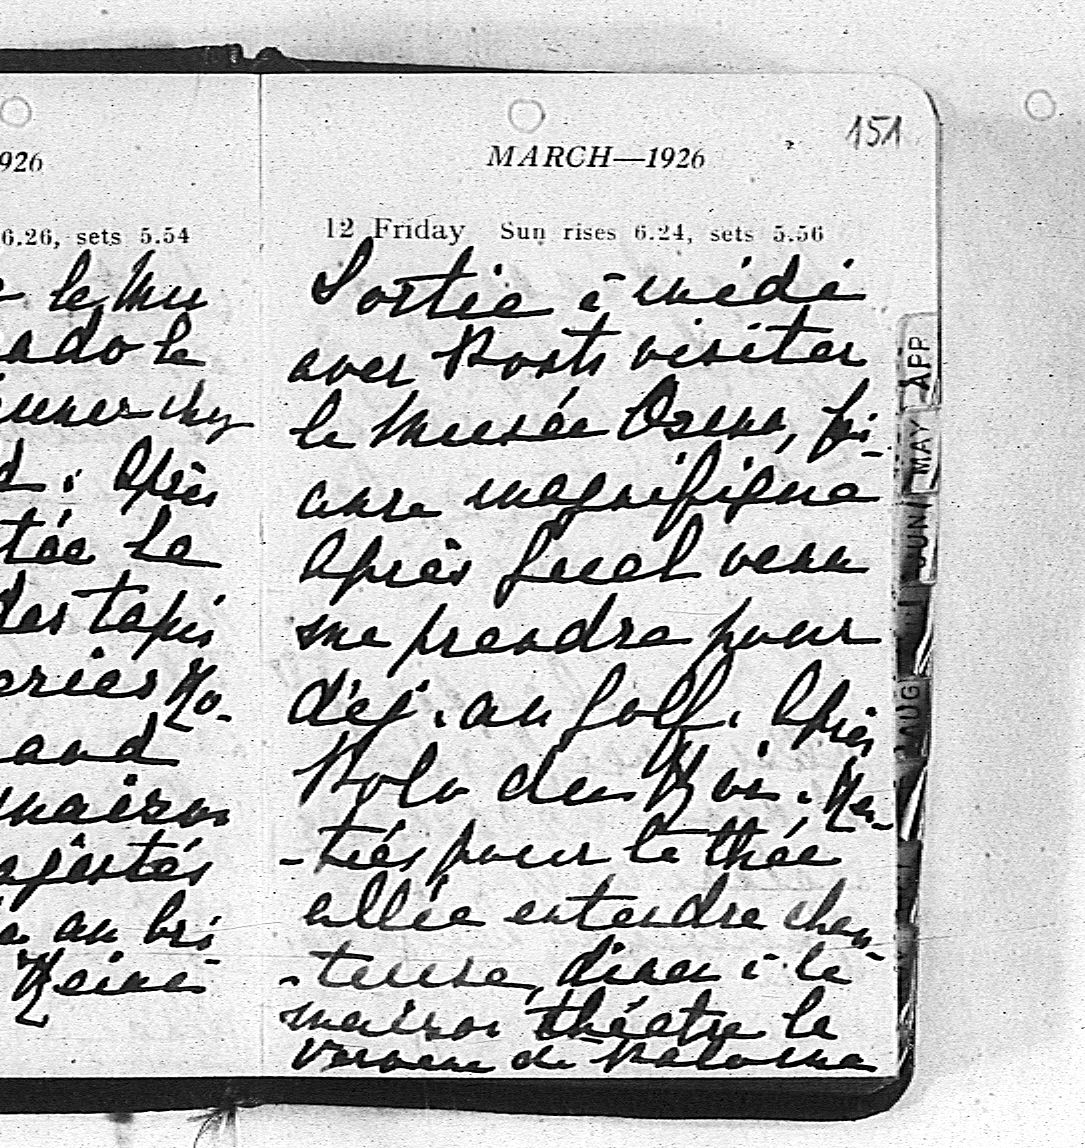 926
6.26, sets 5.54
le Mu
ado le
d. après
tée la
des tapis
eries Ro-
and
maison
ajestés
au bri
Reine
151
MARCH—1926
12 Friday Sun rises 6.24, sets 5.56
Sortie à midi
avec visiter
le Musée Osma, fi-
magnifique
après Juel venu
me prendre pour
déj. au golf. Après
Polo du Roi. Ren-
-trés pour le thée
allée entendre chan
-teuse, diner à la
maison théatre la
de Paloma
APP
MAY
JUN
AUG